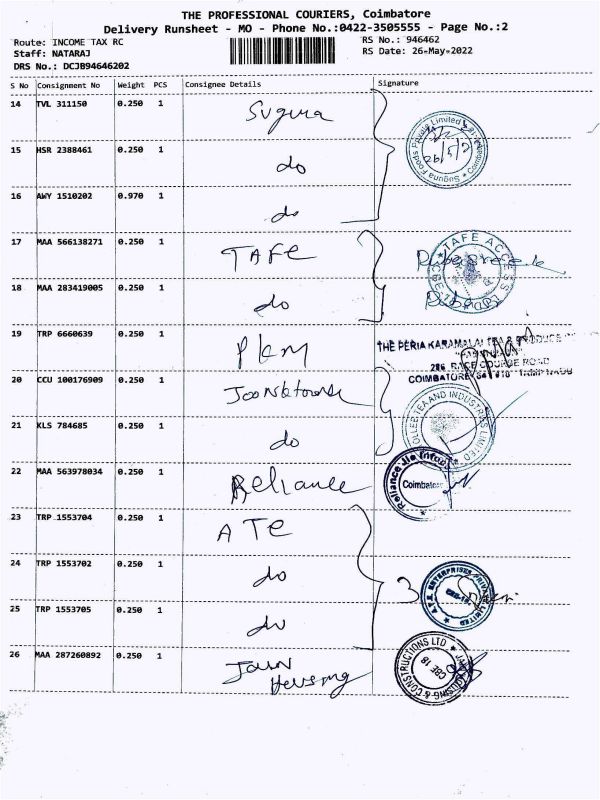 THE PROFESSIONAL COURIERS, Coimbatore
Delivery Runsheet - MO - Phone No.:0422-3505555 - Page No.:2
Route: INCOME TAX RC
RS No.: 946462
Staff: NATARAJ
RS Date: 26-May-2022
DRS No.: DCJB94646202
S No Consignment No Weight PCS Consignee Details Signature
14 TVL 311150 0.250 1 Suguna
Suguna Foods Private Limited Coimbatore
26/5/22
15 HSR 2388461 0.250 1 do
16 AWY 1510202 0.970 1 do
17 MAA 566138271 0.250 1 TAFE
TAFE ACCESS LTD
18 MAA 283419005 0.250 1 do
19 TRP 6660639 0.250 1 PKM
THE PERIA KARAMALAI TEA & PRODUCE
286 RACE COURSE ROAD
COIMBATORE 641 018
20 CCU 100176909 0.250 1
TEA AND INDUSTRIES LIMITED
21 KLS 784685 0.250 1 do
22 MAA 563978034 0.250 1 Reliance
Reliance Jio Infoco
Coimbatore
23 TRP 1553704 0.250 1 ATE
24 TRP 1553702 0.250 1 do
3
A.T.E. ENTERPRISES PRIVATE LIMITED
CBE-18
25 TRP 1553705 0.250 1 do
26 MAA 287260892 0.250 1 Jain
Housing
JAIN HOUSING & CONSTRUCTIONS LTD
CBE 18